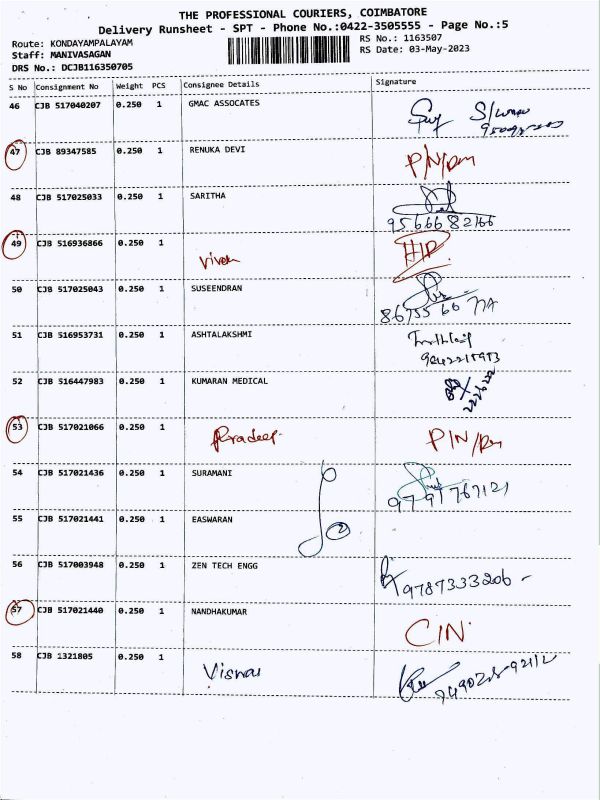 THE PROFESSIONAL COURIERS, COIMBATORE
Delivery Runsheet - SPT - Phone No.:0422-3505555 - Page No.:5
Route: KONDAYAMPALAYAM
Staff: MANIVASAGAN
DRS No.: DCJB116350705
RS No.: 1163507
RS Date: 03-May-2023
S No Consignment No Weight PCS Consignee Details Signature
46 CJB 517040207 0.250 1 GMAC ASSOCATES
47 CJB 89347585 0.250 1 RENUKA DEVI
48 CJB 517025033 0.250 1 SARITHA
9566682166
49 CJB 516936866 0.250 1
50 CJB 517025043 0.250 1 SUSEENDRAN
51 CJB 516953731 0.250 1 ASHTALAKSHMI
52 CJB 516447983 0.250 1 KUMARAN MEDICAL
53 CJB 517021066 0.250 1 Pradeep P/N/
54 CJB 517021436 0.250 1 SURAMANI
9791767121
55 CJB 517021441 0.250 1 EASWARAN
2
56 CJB 517003948 0.250 1 ZEN TECH ENGG
9787333206
57 CJB 517021440 0.250 1 NANDHAKUMAR
C/N
58 CJB 1321805 0.250 1